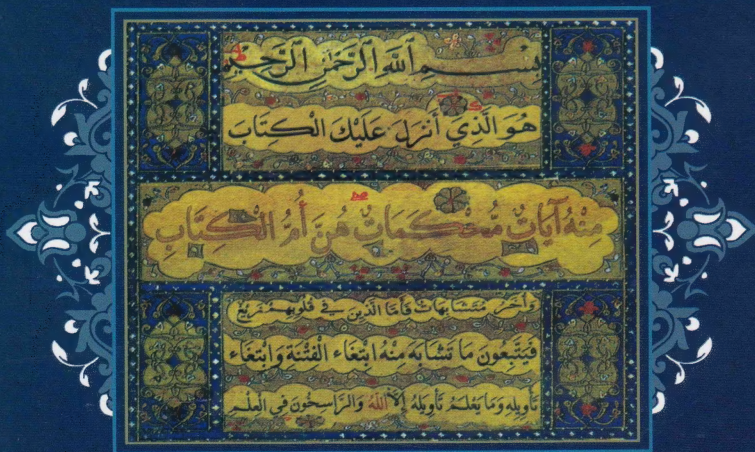 بِسْمِ اللَّهِ الرَّحْمَٰنِ الرَّحِيمِ
هُوَ الَّذِي أَنْزَلَ عَلَيْكَ الْكِتَابَ
مِنْهُ آيَاتٌ مُحْكَمَاتٌ هُنَّ أُمُّ الْكِتَابِ
وَأُخَرُ مُتَشَابِهَاتٌ فَأَمَّا الَّذِينَ فِي قُلُوبِهِمْ زَيْغٌ
فَيَتَّبِعُونَ مَا تَشَابَهَ مِنْهُ ابْتِغَاءَ الْفِتْنَةِ وَابْتِغَاءَ
تَأْوِيلِهِ وَمَا يَعْلَمُ تَأْوِيلَهُ إِلَّا اللَّهُ وَالرَّاسِخُونَ فِي الْعِلْمِ